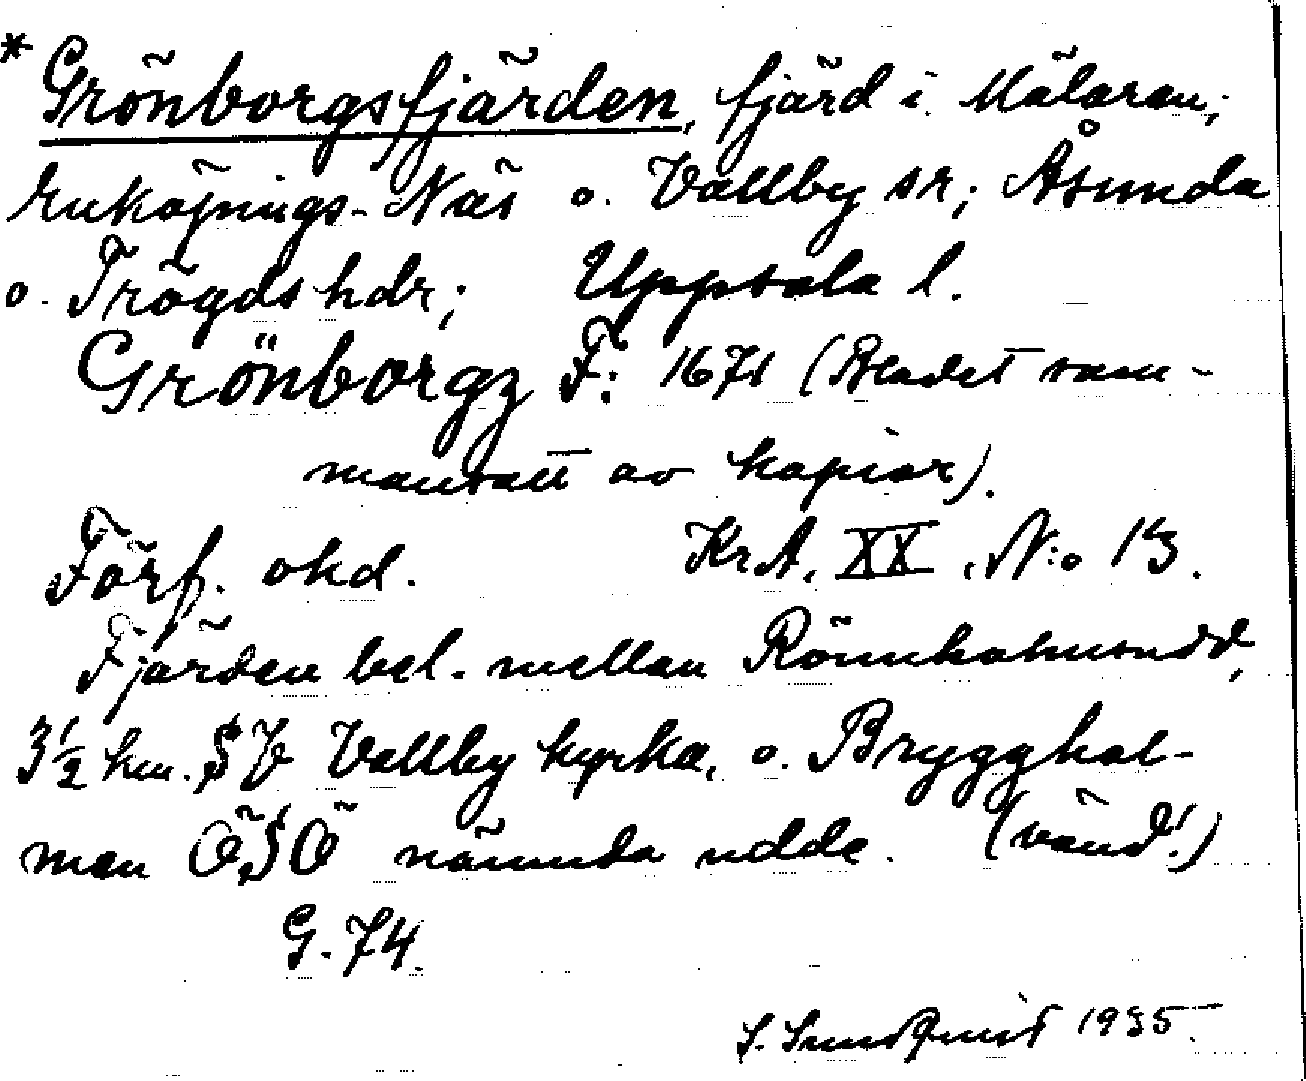 * Grönborgsfjärden, fjärd i Mälaren;
Enköpings-Näs o. Vallby sr; Åsunda
o. Trögds hdr; Uppsala l.
Grönborgz F: 1671 (Bladet sam-
mansatt av kopior).
Förf. okd. Kr.A. XX. N:o 13.
Fjärden bel. mellan Rönnholmsudd,
3½ km. SV Vallby kyrka, o. Brygghol-
men ÖSÖ nämnda udde. (vänd!)
G. 74.
S. Sundquist 1935